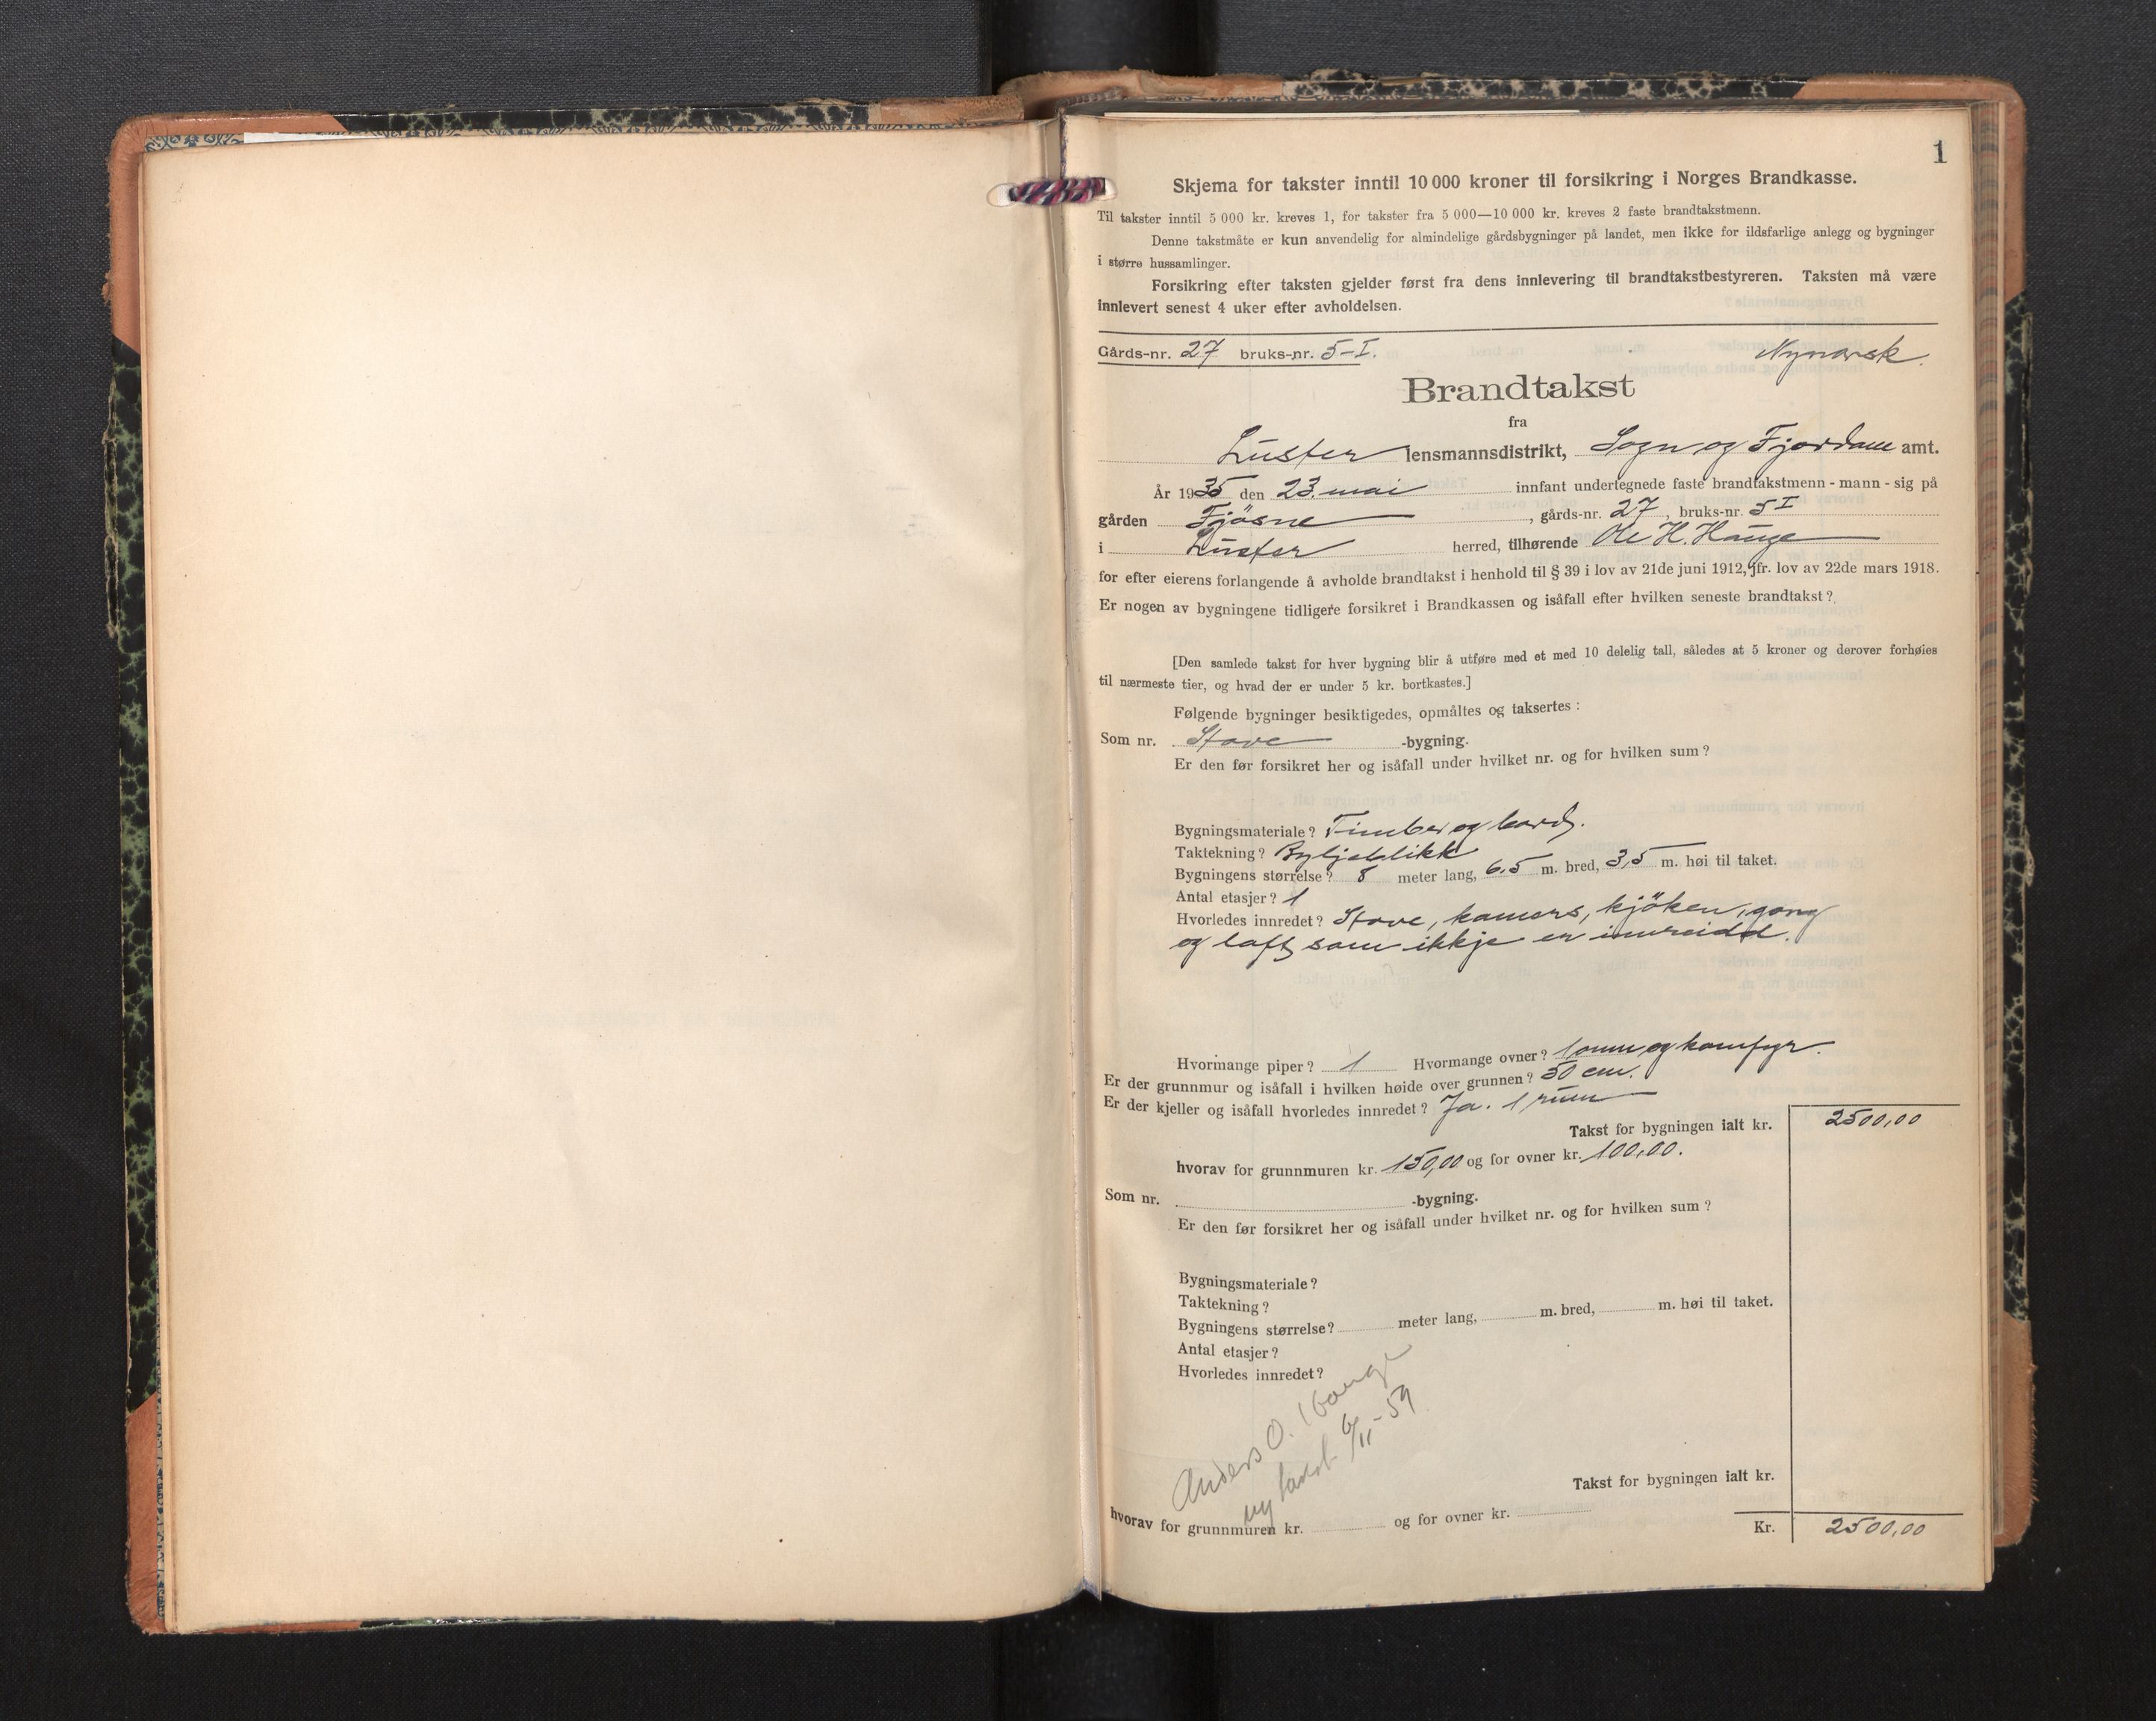 1
Skjema for takster inntil 10 000 kroner til forsikring i Norges Brandkasse.
Til takster inntil 5 000 kr. kreves 1, for takster fra 5 000—10 000 kr. kreves 2 faste brandtakstmenn.
Denne takstmåte er kun anvendelig for almindelige gårdsbygninger på landet, men ikke for ildsfarlige anlegg og bygninger
i større hussamlinger.
Forsikring efter taksten gjelder først fra dens innlevering til brandtakstbestyreren. Taksten må være
innlevert senest 4 uker efter avholdelsen.
Gårds-nr. 27 bruks-nr. 5-I. Nynorsk.
Brandtakst
fra
Luster lensmannsdistrikt, Sogn og Fjordane amt.
År 1935 den 23. mai innfant undertegnede faste brandtakstmenn - mann - sig på
gården Fjösne, gårds-nr. 27, bruks-nr. 5 I
i Luster herred, tilhørende Ole H. Hauge
for efter eierens forlangende å avholde brandtakst i henhold til § 39 i lov av 21de juni 1912, jfr. lov av 22de mars 1918.
Er nogen av bygningene tidligere forsikret i Brandkassen og isåfall efter hvilken seneste brandtakst?
[Den samlede takst for hver bygning blir å utføre med et med 10 delelig tall, således at 5 kroner og derover forhøies
til nærmeste tier, og hvad der er under 5 kr. bortkastes.]
Følgende bygninger besiktigedes, opmåltes og taksertes :
Som nr. Stove -bygning.
Er den før forsikret her og isåfall under hvilket nr. og for hvilken sum?
Bygningsmateriale? Timber og bord.
Taktekning? Bylgjeblikk
Bygningens størrelse? 8 meter lang, 6,5 m. bred, 3,5 m. høi til taket.
Antal etasjer? 1
Hvorledes innredet? Stove, kamers, kjöken, gang
og loft som ikkje er innreidd.
Hvormange piper? 1 Hvormange ovner? 1 omn og komfyr.
Er der grunnmur og isåfall i hvilken høide over grunnen? 50 cm.
Er der kjeller og isåfall hvorledes innredet? Ja. 1 rum
Takst for bygningen ialt kr. 2500,00
hvorav for grunnmuren kr. 150,00 og for ovner kr. 100,00.
Som nr. -bygning.
Er den før forsikret her og isåfall under hvilket nr. og for hvilken sum?
Bygningsmateriale?
Taktekning?
Bygningens størrelse? meter lang, m. bred, m. høi til taket.
Antal etasjer?
Hvorledes innredet?
Anders O. Hauge
ny takst 6/11-59
Takst for bygningen ialt kr.
hvorav for grunnmuren kr. og for ovner kr.
Kr. 2500,00